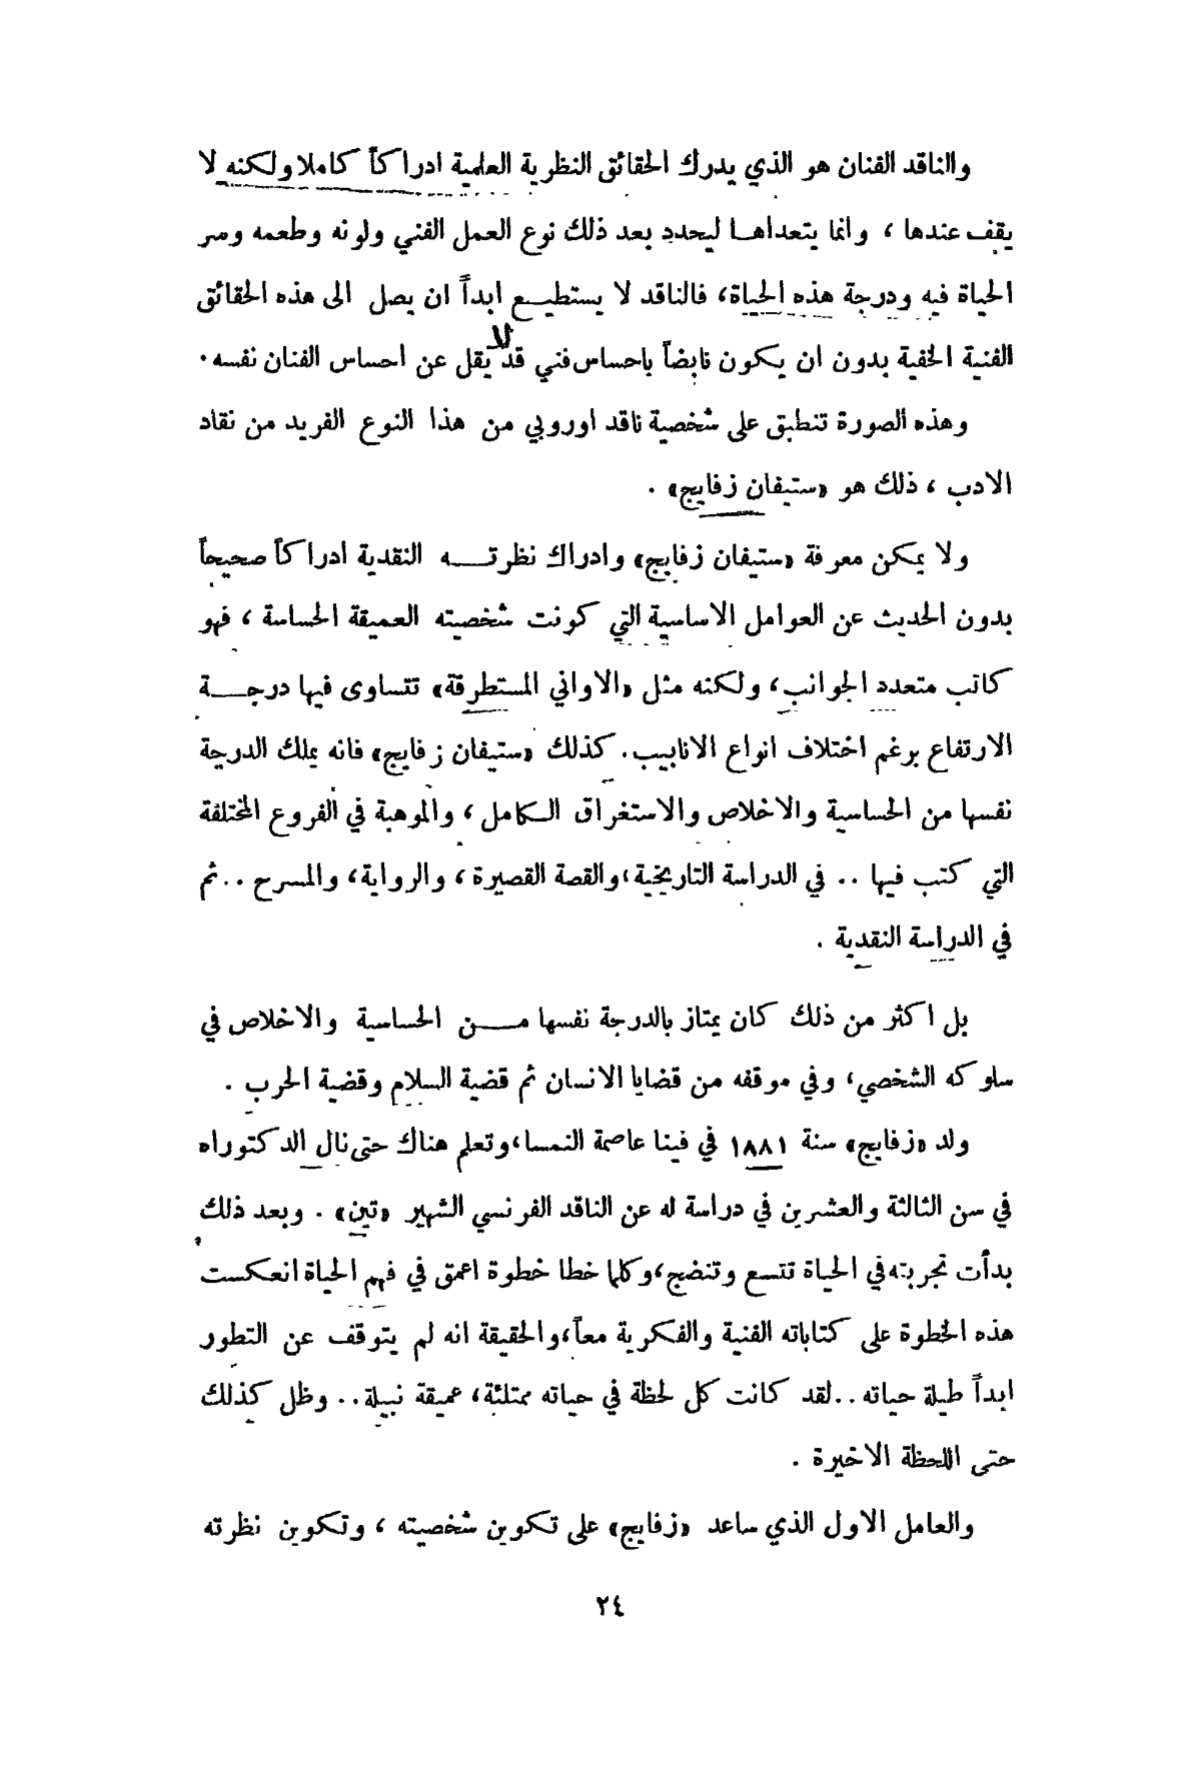 والناقد الفنان هو الذي يدرك الحقائق النظرية العلمية ادراكاً كاملا ولكنه لا
يقف عندها ، وانما يتعداهـا ليحدد بعد ذلك نوع العمل الفني ولونه وطعمه وسر
الحياة فيه ودرجة هذه الحياة، فالناقد لا يستطيـع ابداً ان يصل الى هذه الحقائق
الفنية الخفية بدون ان يكون نابضاً باحساس فني قد لا يقل عن احساس الفنان نفسه .
وهذه الصورة تنطبق على شخصية ناقد اوروبي من هذا النوع الفريد من نقاد
الادب ، ذلك هو «ستيفان زفايج» .
ولا يمكن معرفة «ستيفان زفايج» وادراك نظرتــه النقدية ادراكاً صحيحاً
بدون الحديث عن العوامل الاساسية التي كونت شخصيته العميقة الحساسة ، فهو
كاتب متعدد الجوانب، ولكنه مثل «الاواني المستطرقة» تتساوى فيها درجــة
الارتفاع برغم اختلاف انواع الانابيب. كذلك «ستيفان زفايج» فانه يملك الدرجة
نفسها من الحساسية والاخلاص والاستغراق الـكامل ، والموهبة في الفروع المختلفة
التي كتب فيها .. في الدراسة التاريخية ،والقصة القصيرة ، والرواية، والمسرح .. ثم
في الدراسة النقدية .
بل اكثر من ذلك كان يمتاز بالدرجة نفسها مــن الحساسية والاخلاص في
سلوكه الشخصي، وفي موقفه من قضايا الانسان ثم قضية السلام وقضية الحرب .
ولد «زفايج» سنة ١٨٨١ في فينا عاصمة النمسا،وتعلم هناك حتى نال الدكتوراه
في سن الثالثة والعشرين في دراسة له عن الناقد الفرنسي الشهير «تين» . وبعد ذلك
بدأت تجربته في الحياة تتسع وتنضج،وكلما خطا خطوة اعمق في فهم الحياة انعكست
هذه الخطوة على كتاباته الفنية والفكرية معاً،والحقيقة انه لم يتوقف عن التطور
ابداً طيلة حياته ..لقد كانت كل لحظة في حياته ممتلئة، عميقة نبيلة.. وظل كذلك
حتى اللحظة الاخيرة .
والعامل الاول الذي ساعد «زفايج» على تكوين شخصيته ، وتكوين نظرته
٢٤